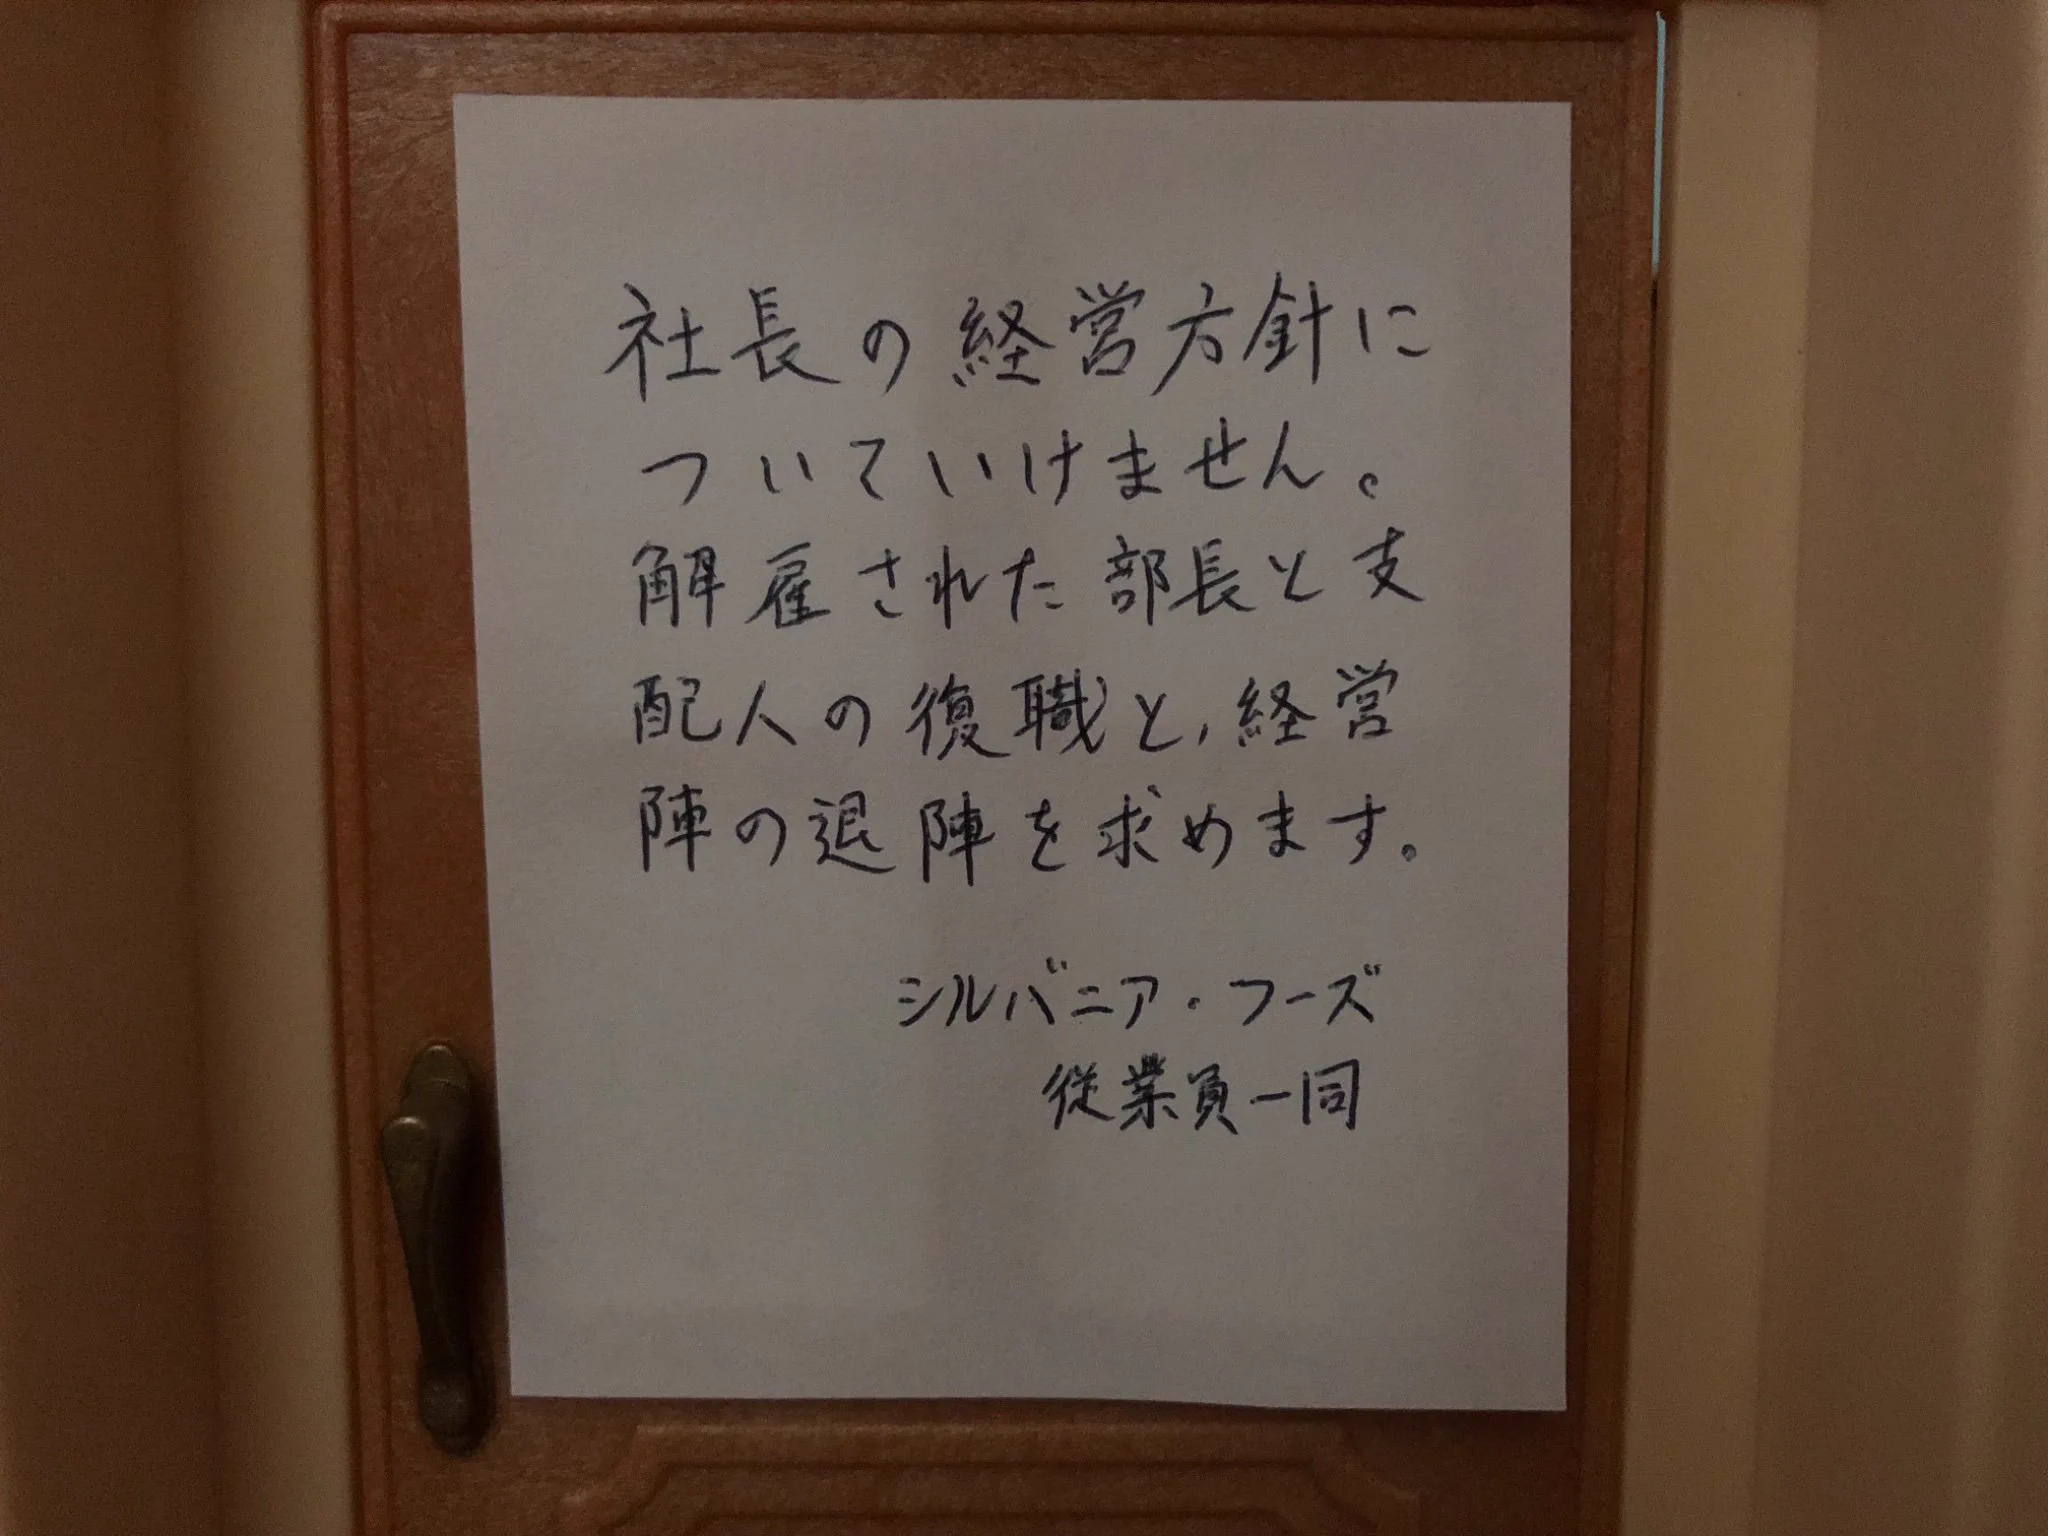 社長の経営方針に
ついていけません。
解雇された部長と支
配人の復職と、経営
陣の退陣を求めます。
シルバニア・フーズ
従業員一同